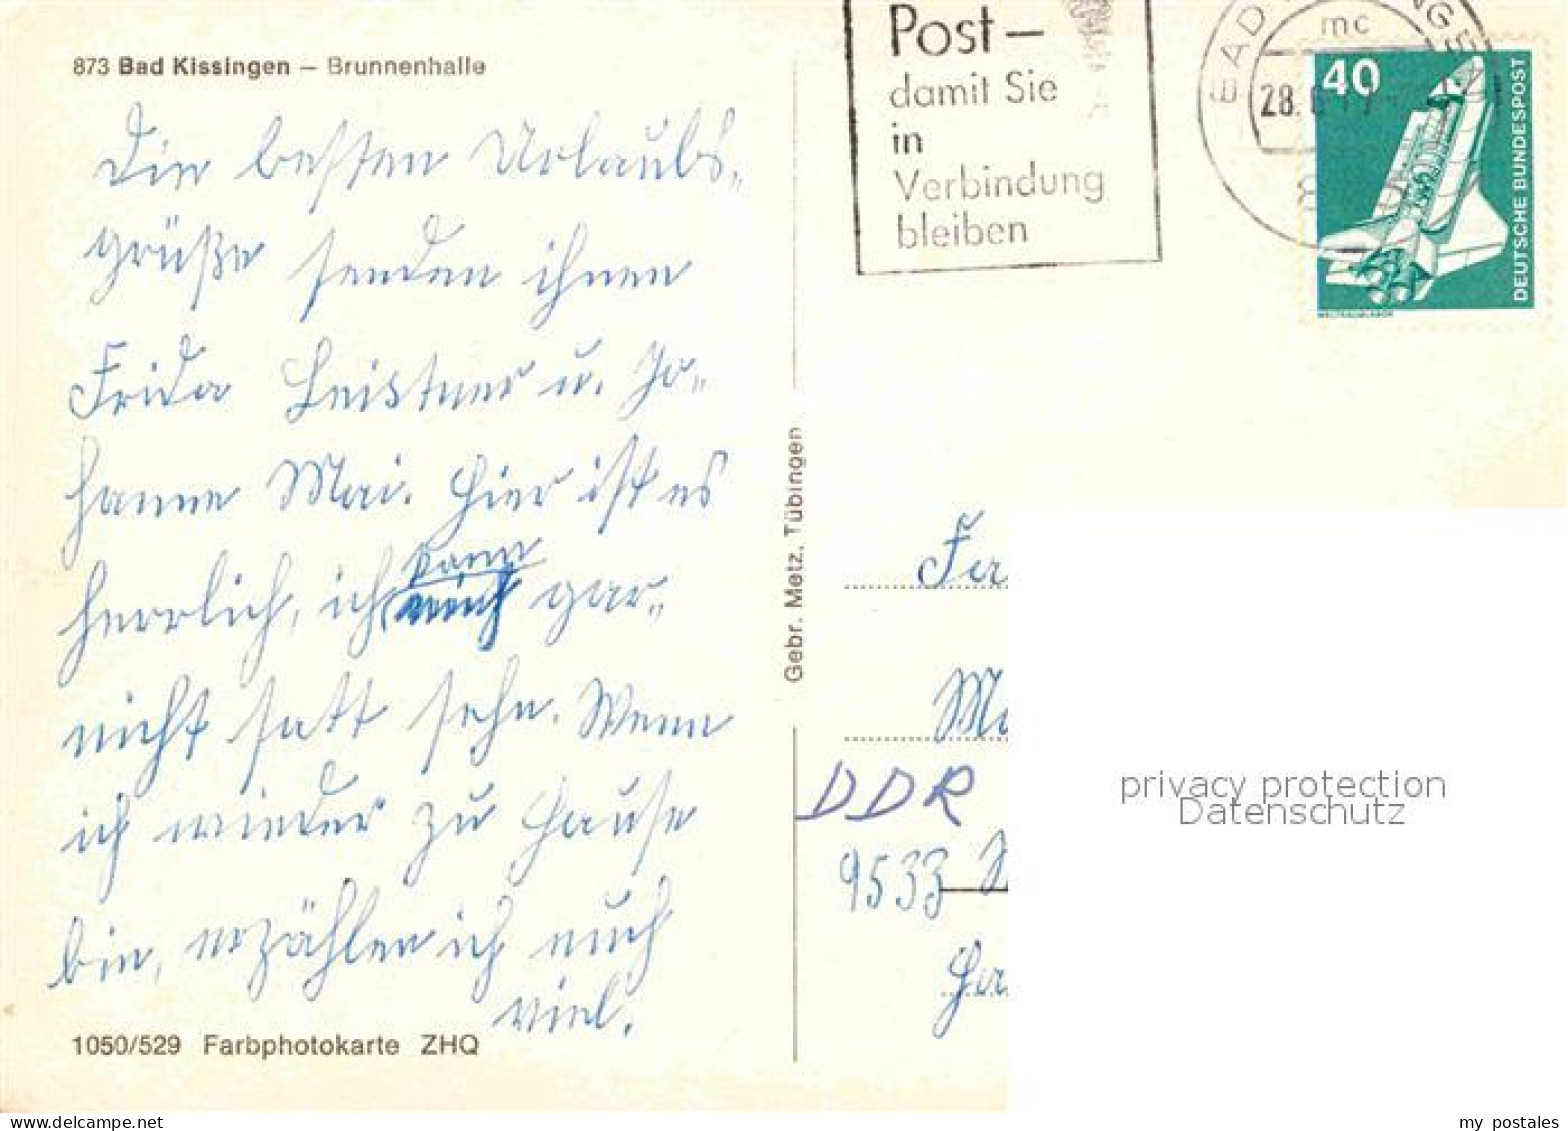 873 Bad Kissingen – Brunnenhalle
Die besten Urlaubs-
grüße senden ihnen
Frida Leistner u. Jo-
hanne Mai. Hier ist es
herrlich, ich kann gar-
nicht satt sehn. Wenn
ich wieder zu Hause
bin, erzählen ich euch
viel.
1050/529 Farbphotokarte ZHQ
Gebr. Metz, Tübingen
Post –
damit Sie
in
Verbindung
bleiben
mc
28.
40
DEUTSCHE BUNDESPOST
WELTRAUMLABOR
Fa
DDR
9533
privacy protection
Datenschutz
my postales